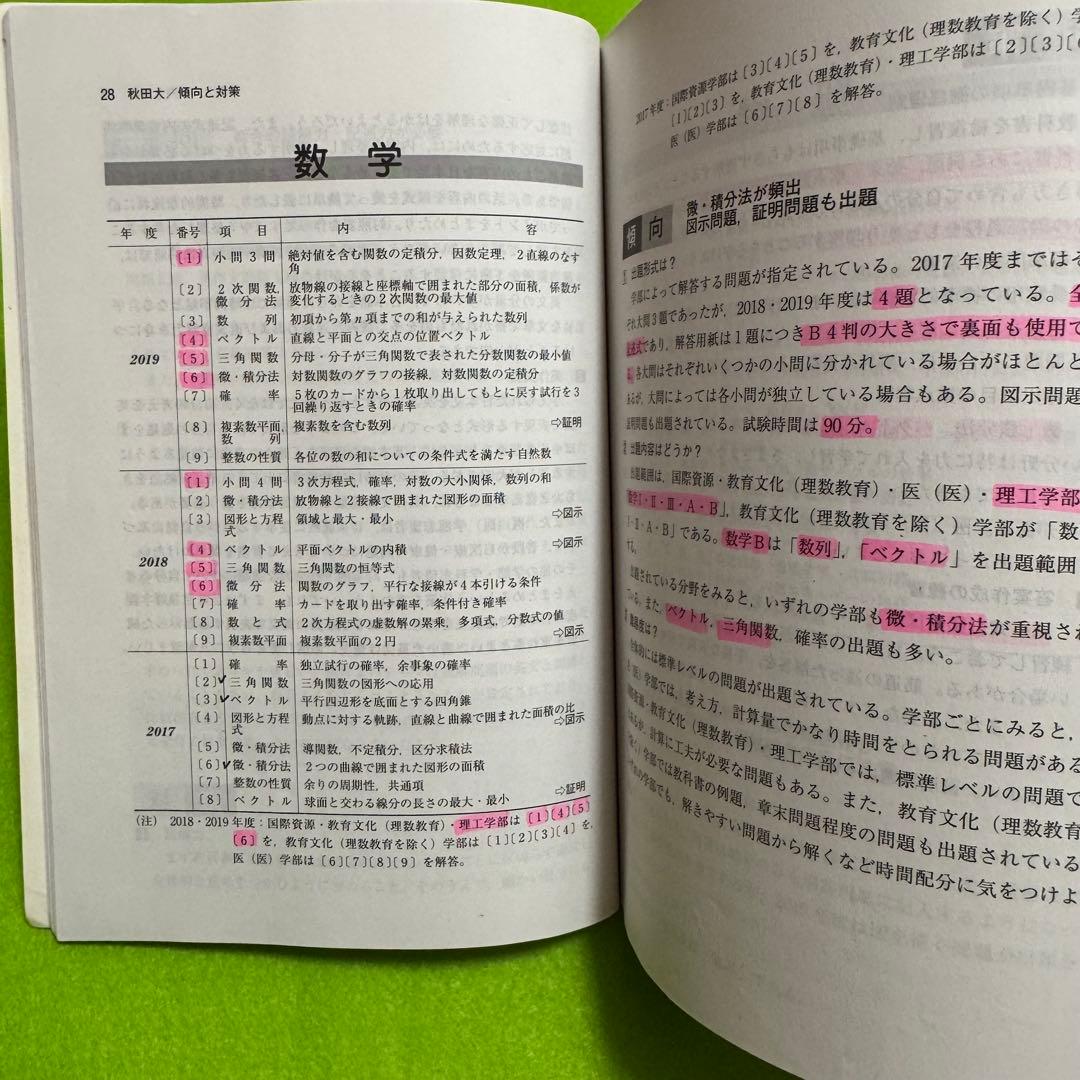 28 秋田大／傾向と対策
数 学
年 度 番号 項 目 内 容
〔1〕 小 問 3 問 絶対値を含む関数の定積分，因数定理，2直線のなす
角
〔2〕 2 次 関 数， 放物線の接線と座標軸で囲まれた部分の面積，係数が
微 分 法 変化するときの2次関数の最大値
〔3〕 数 列 初項から第n項までの和が与えられた数列
〔4〕 ベ ク ト ル 直線と平面との交点の位置ベクトル
2019 〔5〕 三 角 関 数 分母・分子が三角関数で表された分数関数の最小値
〔6〕 微・積分法 対数関数のグラフの接線，対数関数の定積分
〔7〕 確 率 5枚のカードから1枚取り出してもとに戻す試行を3
回繰り返すときの確率
〔8〕 複素数平面， 複素数を含む数列 ⇨証明
数 列
〔9〕 整数の性質 各位の数の和についての条件式を満たす自然数
〔1〕 小 問 4 問 3次方程式，確率，対数の大小関係，数列の和
〔2〕 微・積分法 放物線と2接線で囲まれた図形の面積
〔3〕 図形と方程 領域と最大・最小 ⇨図示
式
〔4〕 ベ ク ト ル 平面ベクトルの内積 ⇨図示
2018 〔5〕 三 角 関 数 三角関数の恒等式
〔6〕 微 分 法 関数のグラフ，平行な接線が4本引ける条件
〔7〕 確 率 カードを取り出す確率，条件付き確率
〔8〕 数 と 式 2次方程式の虚数解の累乗，多項式，分数式の値
〔9〕 複素数平面 複素数平面の2円 ⇨図示
〔1〕 確 率 独立試行の確率，余事象の確率
〔2〕 三 角 関 数 三角関数の図形への応用
〔3〕 ベ ク ト ル 平行四辺形を底面とする四角錐
〔4〕 図形と方程 動点に対する軌跡，直線と曲線で囲まれた面積の比
2017 式 ⇨図示
〔5〕 微・積分法 導関数，不定積分，区分求積法
〔6〕 微・積分法 2つの曲線で囲まれた図形の面積
〔7〕 整数の性質 余りの周期性，共通項
〔8〕 ベ ク ト ル 球面と交わる線分の長さの最大・最小 ⇨証明
（注） 2018・2019年度：国際資源・教育文化（理数教育）・理工学部は〔1〕〔4〕〔5〕
〔6〕を，教育文化（理数教育を除く）学部は〔1〕〔2〕〔3〕〔4〕を，
医（医）学部は〔6〕〔7〕〔8〕〔9〕を解答。
2017年度：国際資源学部は〔3〕〔4〕〔5〕を，教育文化（理数教育を除く）学
〔1〕〔2〕〔3〕を，教育文化（理数教育）・理工学部は〔2〕〔3〕〔6
医（医）学部は〔6〕〔7〕〔8〕を解答。
傾 向
微・積分法が頻出
図示問題，証明問題も出題
出題形式は？
学部によって解答する問題が指定されている。2017年度まではそ
ぞれ大問3題であったが，2018・2019年度は4題となっている。全
述式であり，解答用紙は1題につきB4判の大きさで裏面も使用で
各大問はそれぞれいくつかの小問に分かれている場合がほとんど
あるが，大問によっては各小問が独立している場合もある。図示問題
証明問題も出題されている。試験時間は90分。
出題内容はどうか？
出題範囲は，国際資源・教育文化（理数教育）・医（医）・理工学部
数学Ⅰ・Ⅱ・Ⅲ・A・B」，教育文化（理数教育を除く）学部が「数
Ⅰ・Ⅱ・A・B」である。数学Bは「数列」，「ベクトル」を出題範囲
する。
出題されている分野をみると，いずれの学部も微・積分法が重視され
ている。また，ベクトル，三角関数，確率の出題も多い。
難易度は？
全体的には標準レベルの問題が出題されている。学部ごとにみると，
医（医）学部では，考え方，計算量でかなり時間をとられる問題がある
国際資源・教育文化（理数教育）・理工学部では，標準レベルの問題で
あるが，計算に工夫が必要な問題もある。また，教育文化（理数教育
を除く）学部では教科書の例題，章末問題程度の問題も出題されている
いずれの学部でも，解きやすい問題から解くなど時間配分に気をつけよ